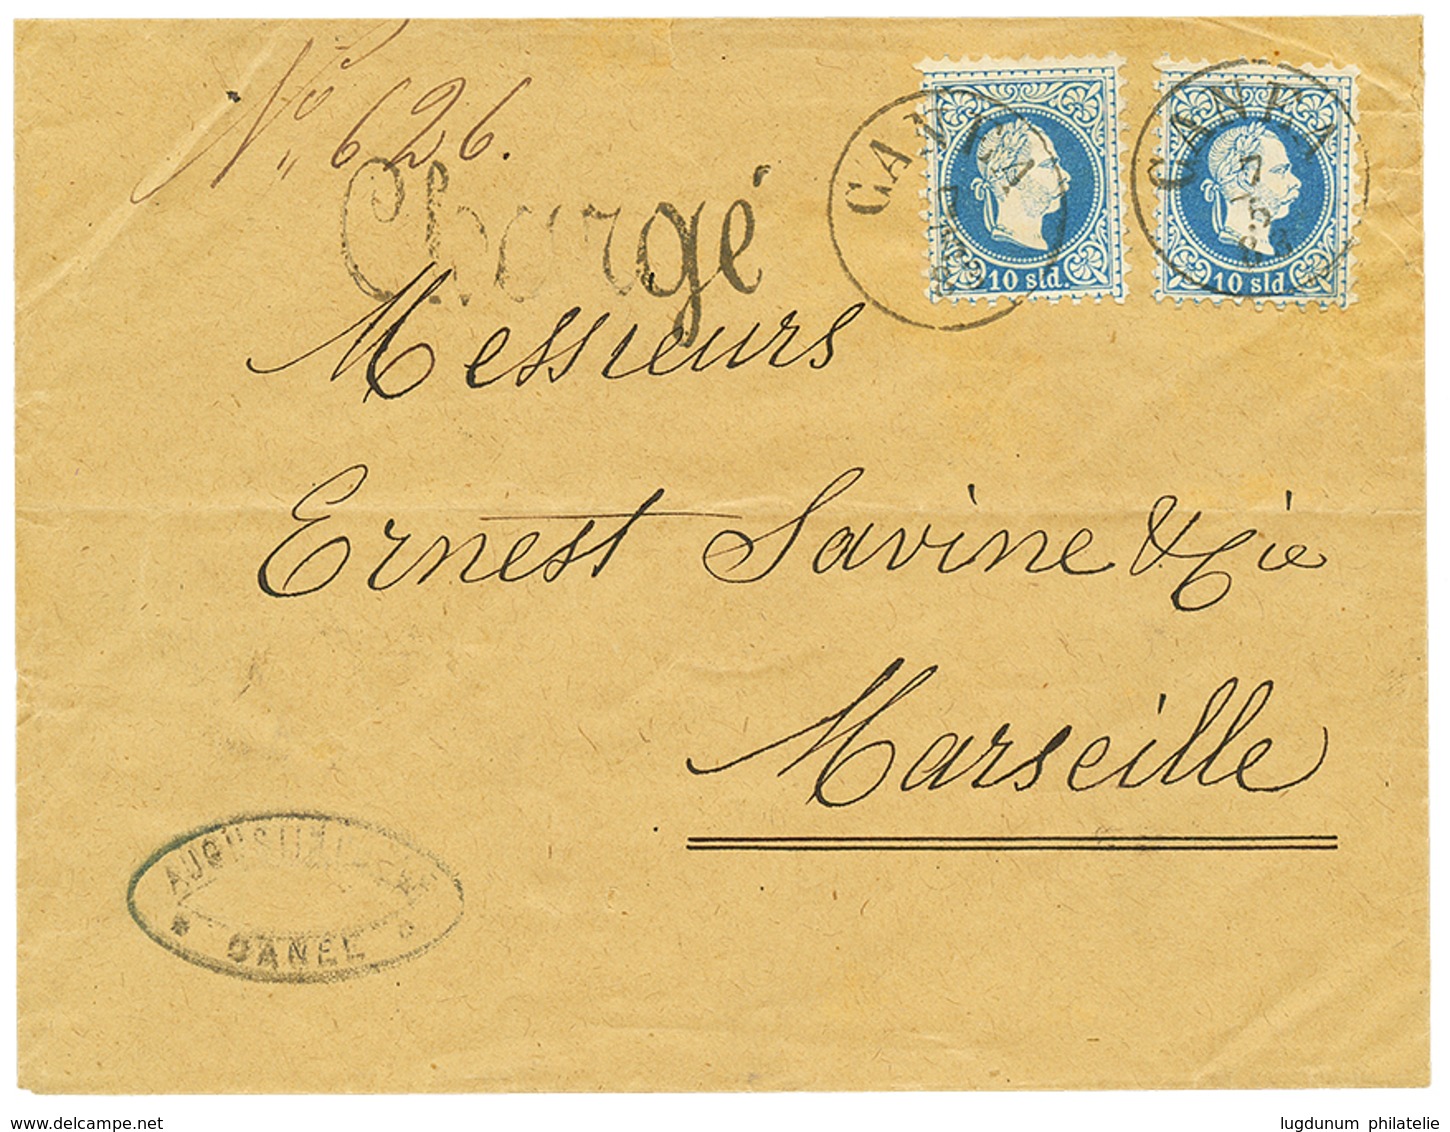 No 626.
Chargé
CANEA
7
10 sld.
CANEA
7
10 sld.
Messieurs
Ernest Savine & Cie
Marseille
CANEE
www.delcampe.net
lugdunum philatelie